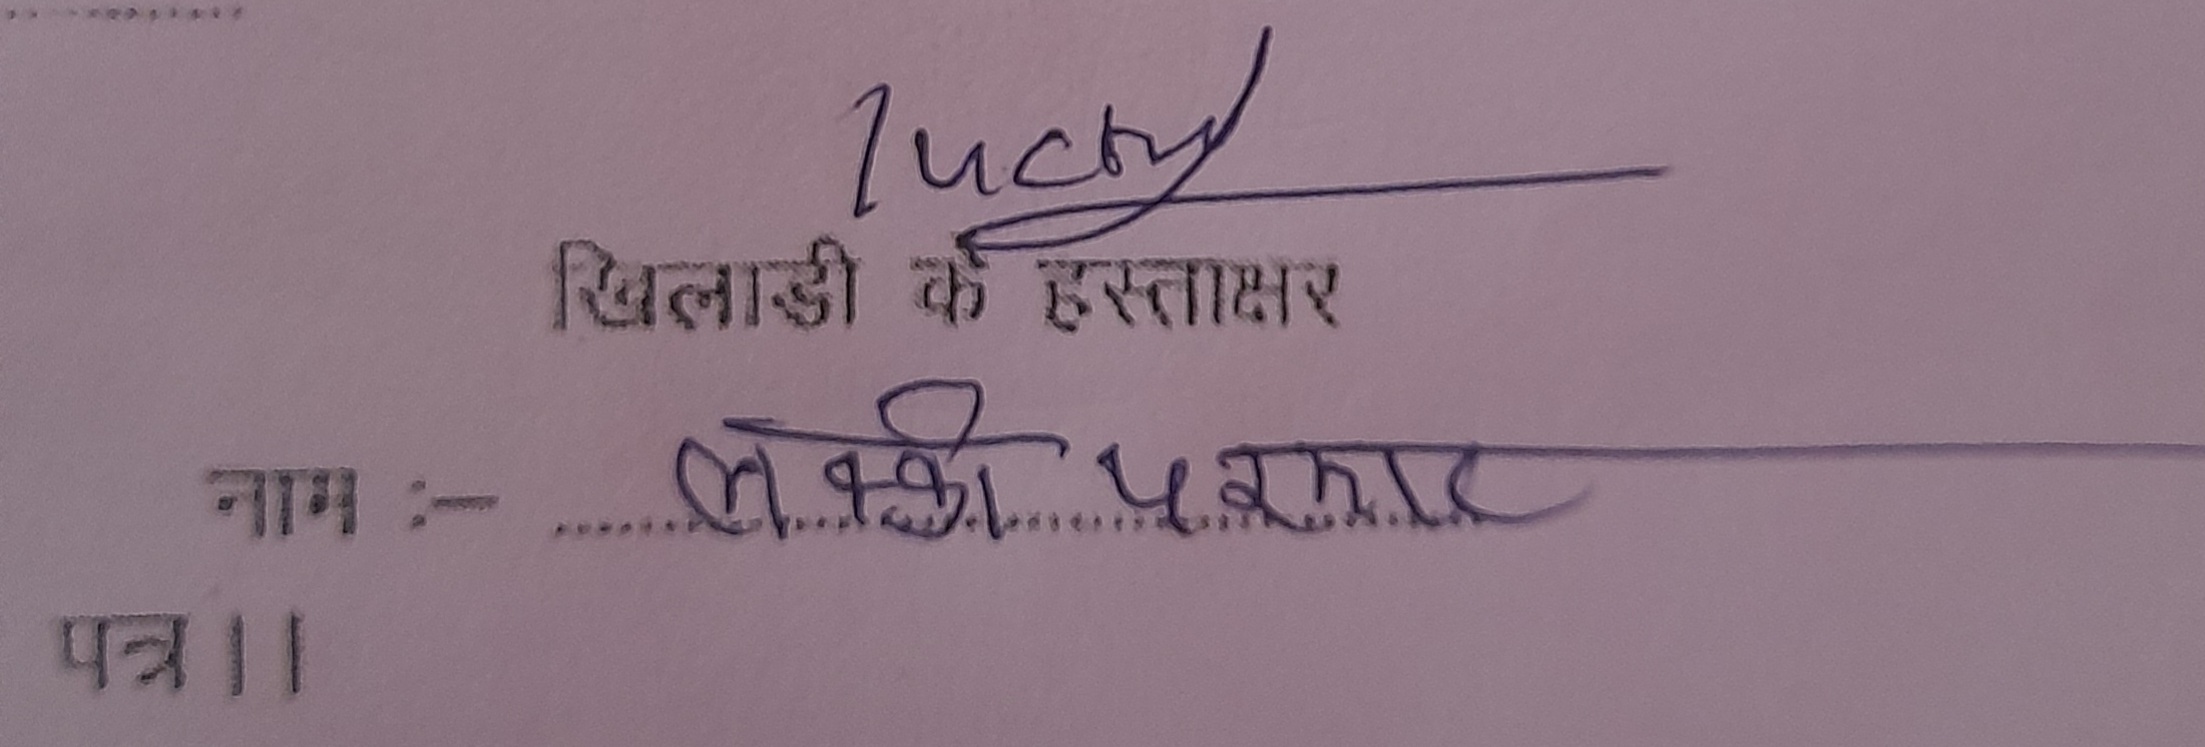 lucky
खिलाडी के हस्ताक्षर
नाम :- लक्की परमार
पत्र ।।